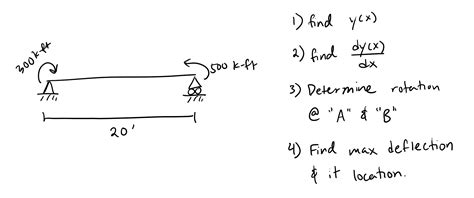 300 k-ft
500 k-ft
20'
1) find y(x)
2) find dy(x)/dx
3) Determine rotation
@ "A" & "B"
4) Find max deflection
& it location.